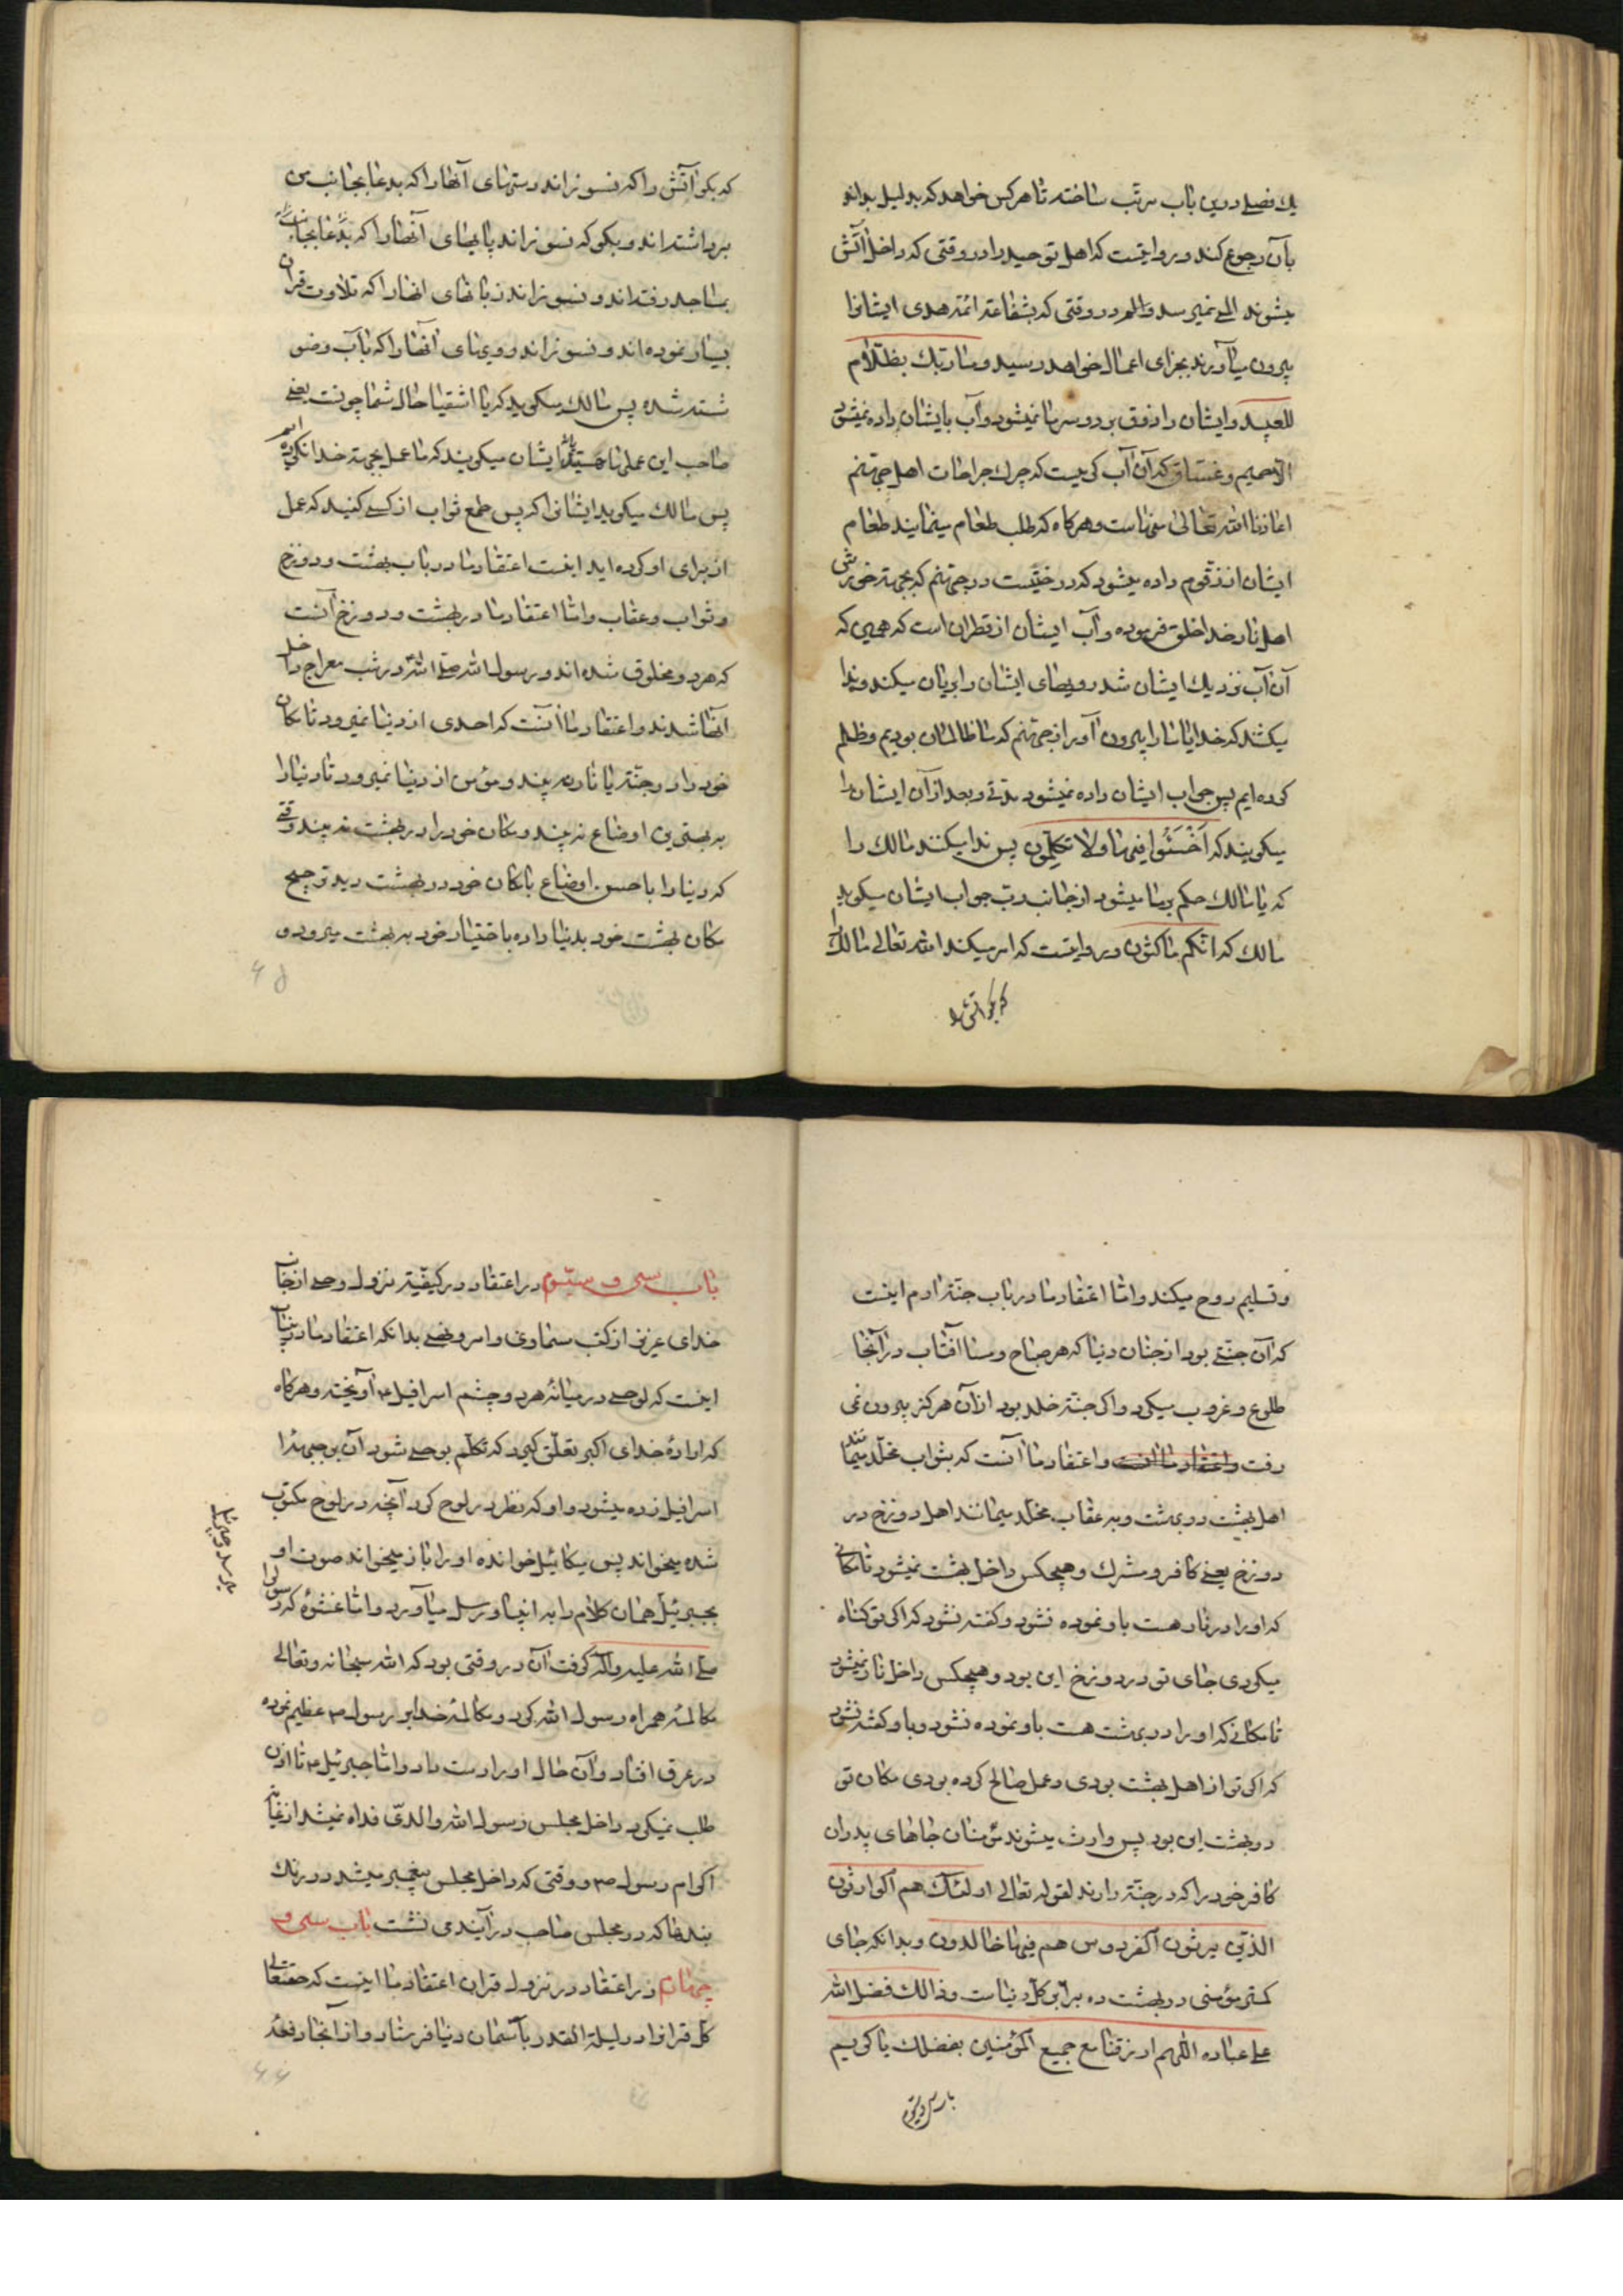 یك فصلے درین باب مرتب ساخته تا هر کس خواهد که بدلیل بداند
بآن رجوع کند و روایتست که اهل توحید را در وقتی که داخل آتش
میشوند المے نمیرسد و الم در وقتی که بشفاعة ائمه هدی ایشانرا
بیرون میآورند بجزای اعمال خواهد رسید و ما ربك بظلّام
للعبید و ایشان را ذوق برد و سرما نمیشود و آب بایشان داده نمیشود
الا حمیم و غسّاق که آن آب کمیست که چرك جراحات اهل جهنم
اعاذنا الله تعالی منهاست و هرکاه که طلب طعام مینمایند طعام
ایشان از زقّوم داده میشود که درختیست در جهنم که بجهة خورش
اهل نار خدا خلق فرموده و آب ایشان از قطران است که همین که
آن آب نزدیك ایشان شد رویهای ایشان را بریان میکند و ندا
میکنند که خدایا ما را بیرون آور از جهنم که ما ظالمان بودیم و ظلم
کرده ایم پس جواب ایشان داده نمیشود مدتے و بعد از آن ایشان را
میکویند که اَخْسَئُوا فیها ولا تکلّمون پس ندا میکنند مالك را
که یا مالك حکم بر ما میشود از جانب رب جواب ایشان میکوید
مالك که انّکم ماکثون و روایتست که امر میکند الله تعالے مالك را
که بکو آتش را
که بکو آتش را که نسوزاند دستهای آنها را که بدعا بجانب من
برداشته اند و بکو که نسوزاند پایهای آنها را که بجانب
مساجد رفته اند و نسوزاند زبانهای انها را که تلاوت قران
بسیار نموده اند و نسوزاند رویهای آنها را که بآب وضو
شسته شده پس مالك میکوید که یا اشقیا حال شما چونست یعنے
صاحب این عملها هستید ایشان میکویند که ما عمل بجهة خدا نکرده ایم
پس مالك میکوید ایشانرا که پس طمع ثواب از کسے کنید که عمل
از برای او کرده اید اینست اعتقاد ما در باب بهشت و دوزخ
و ثواب و عقاب و اما اعتقاد ما در بهشت و دوزخ آنست
که هر دو مخلوق شده اند و رسول الله صلّے الله در شب معراج داخل
آنها شدند و اعتقاد ما آنست که احدی از دنیا نمیرود تا مکان
خود را در جنّة یا نار نه بیند و مؤمن از دنیا نمیرود تا دنیا را
به بهترین اوضاع نه بیند و مکان خود را در بهشت نه بیند وقتے
که دنیا را باحسن اوضاع با مکان خود در بهشت دید ترجیح
مکان بهشت خود بدنیا داده باختیار خود به بهشت میرود و
۶۵
و تسلیم روح میکند و اما اعتقاد ما در باب جنّة ادم اینست
که آن جنّتے بود از جنان دنیا که هر صباح و مسا آفتاب در آنجا
طلوع و غروب میکرد و اکر جنّة خلد بود از آن هرکز بیرون نمی
رفت واعتقاد ما انست و اعتقاد ما آنست که بثواب مخلّد میمانند
اهل بهشت در بهشت و به عقاب مخلّد میمانند اهل دوزخ در
دوزخ یعنے کافر و مشرك و هیچکس داخل بهشت نمیشود تا مکانے
که او را در نار هست باو نموده نشود و کفته نشود که اکر تو کناه
میکردی جای تو در دوزخ این بود و هیچکس داخل نار نمیشود
تا مکانے که او را در بهشت هست باو نموده نشود و باو کفته نشود
که اکر تو از اهل بهشت بودی و عمل صالح کرده بودی مکان تو
در بهشت این بود پس وارث میشوند مؤمنان جاهای پدران
کافر خود را که در جنّة دارند لقوله تعالے اولئك هم الوارثون
الذین یرثون الفردوس هم فیها خالدون و بدانکه جای
کمتر مؤمنی در بهشت ده برابر کلّ دنیاست و ذالك فضل الله
علے عباده اللّهم ارزقنا مع جمیع المؤمنین بفضلك یا کریم
باب سی و سیّوم
باب سی و سیّوم در اعتقاد در کیفیّة نزول وحے از جانب
خدای عزیز از کتب سماوی و امر و نهے بدانکه اعتقاد ما درینباب
اینست که لوحے در میانهٔ هر دو چشم اسرافیل ع آویخته و هرکاه
که ارادهٔ خدای اکبر تعلّق کیرد که تکلّم بوحے شود آن بر جبههٔ
اسرافیل زده میشود و او که نظر در لوح کرد آنچه در لوح مکتوب
شده میخواند پس میکائیل خوانده او را باز میخواند صوت او
میرسد و جبرئیل
بجبرئیل همان کلام را به انبیا و رسل میآورد و اما غشوهٔ که رسول را
صلّے الله علیه وآله کرفت آن در وقتی بود که الله سبحانه و تعالے
مکالمه همراه رسول الله کرد و مکالمهٔ خدا بر رسول ص عظیم نموده
در عرق افتاد و آن حال او را دست داد و اما جبرئیل ع تا اذن
طلب نمیکرد داخل مجلس رسول الله والدیّ فداه نمیشد از غایة
اکرام رسول ص و وقتی که داخل مجلس پیغمبر میشد در رنك
بندها که در مجلس صاحب در آیند می نشست باب سی و
چهارم در اعتقاد در نزول قران اعتقاد ما اینست که حقتعالے
کلّ قرانرا در لیلة القدر بآسمان دنیا فرستاد و از آنجا دفعه
۶۶